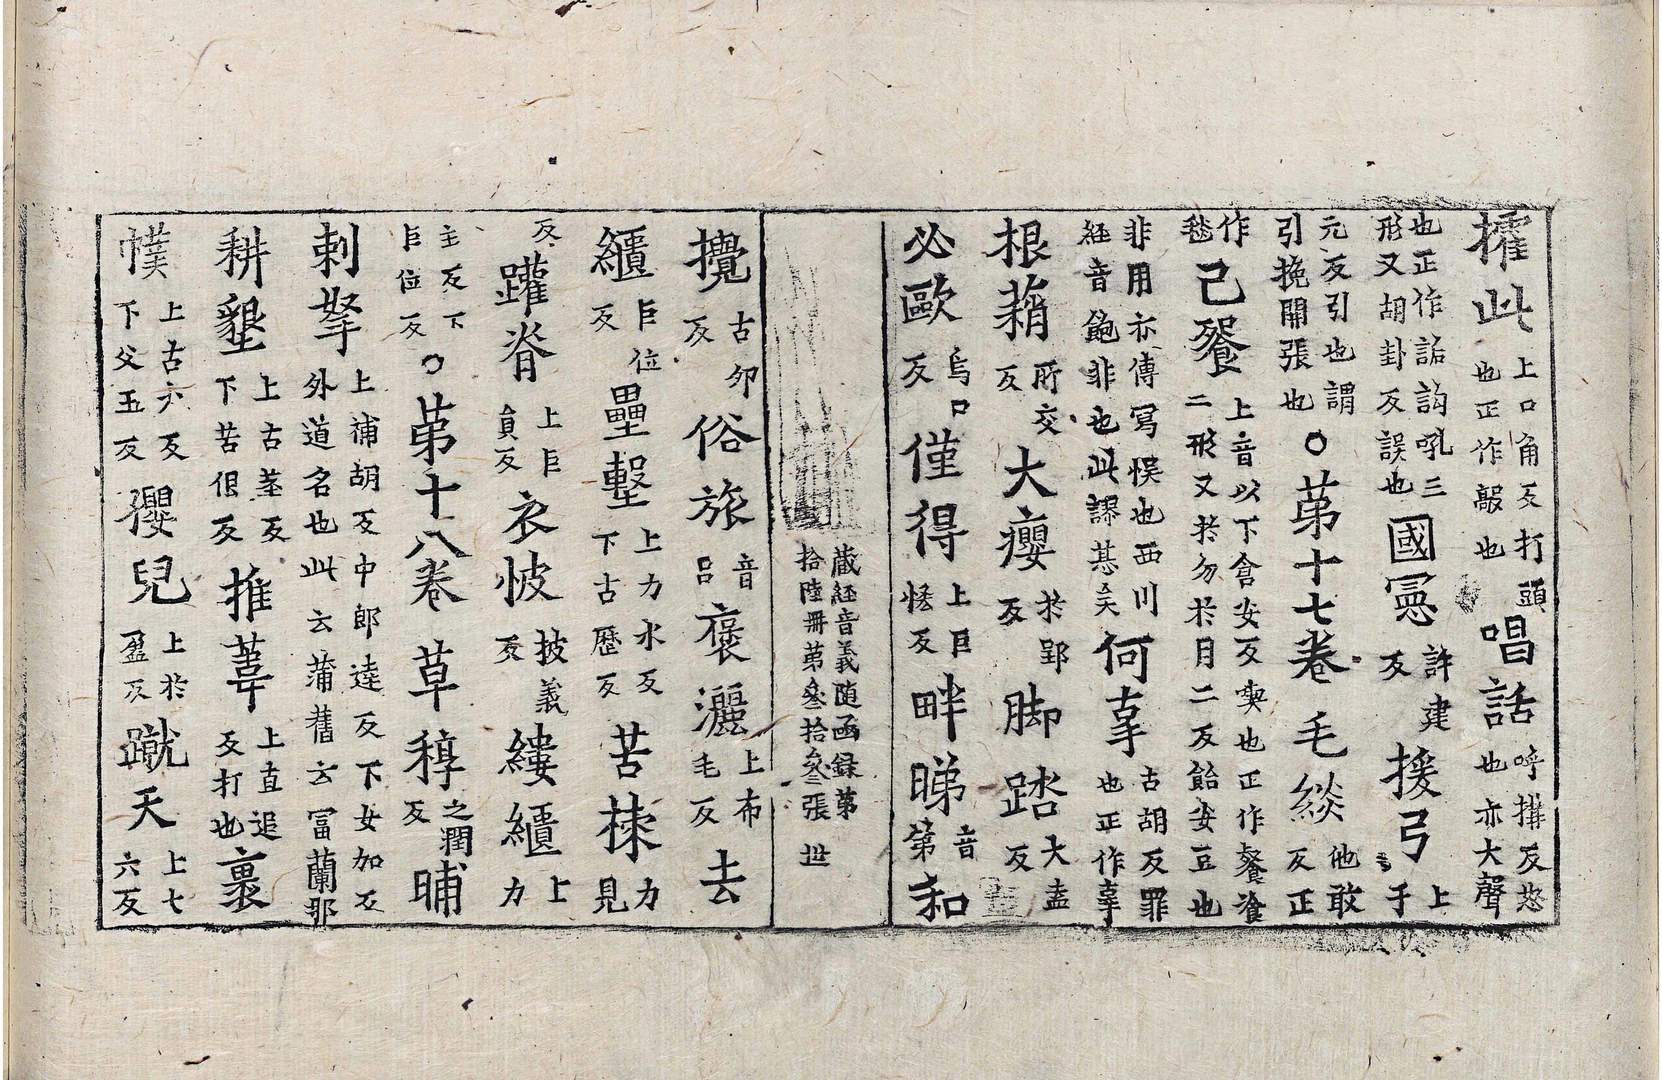 搉此上口角反打頭也正作敲也唱話呼搆反怒也亦大聲
也正作詬訽吼三形又胡卦反誤也國𡩡許建反援弓上于
元反引也謂引挽開張也○第十七卷毛緂他敢反正
作毯己餮上音以下倉安反喫也正作餐飡二形又於勿於月二反飴安豆也
非用亦傳寫悞也西川經音鮑非也此謬甚矣何辜古胡反罪也正作辜
根䕼所交反大癭於郢反脚踏大盍反
必歐烏口反僅得上巨悋反畔睇音第和
藏經音義随函録第拾陸冊第叄拾叄張 世
攪古夘反俗旅音吕褒灑上布毛反去
繿巨位反壘墼上力水反下古歷反苦楝力見
反躍脊上巨員反衣帔披義反縷繿上力
主反下巨位反○第十八卷草稕之潤反晡
剌拏上浦胡反中郎逹反下女加反外道名也此云蒲舊云冨蘭那
耕墾上古莖反下苦佷反推葦上直追反打也裹
幞上古六反下父玉反孾兒上於盈反蹴天上七六反